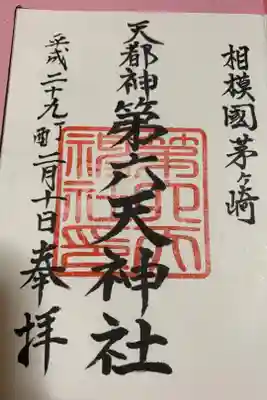 相模國茅ヶ崎
天都神
第六天神社
平成二十九丁酉二月十日
奉拝
第六天神社印